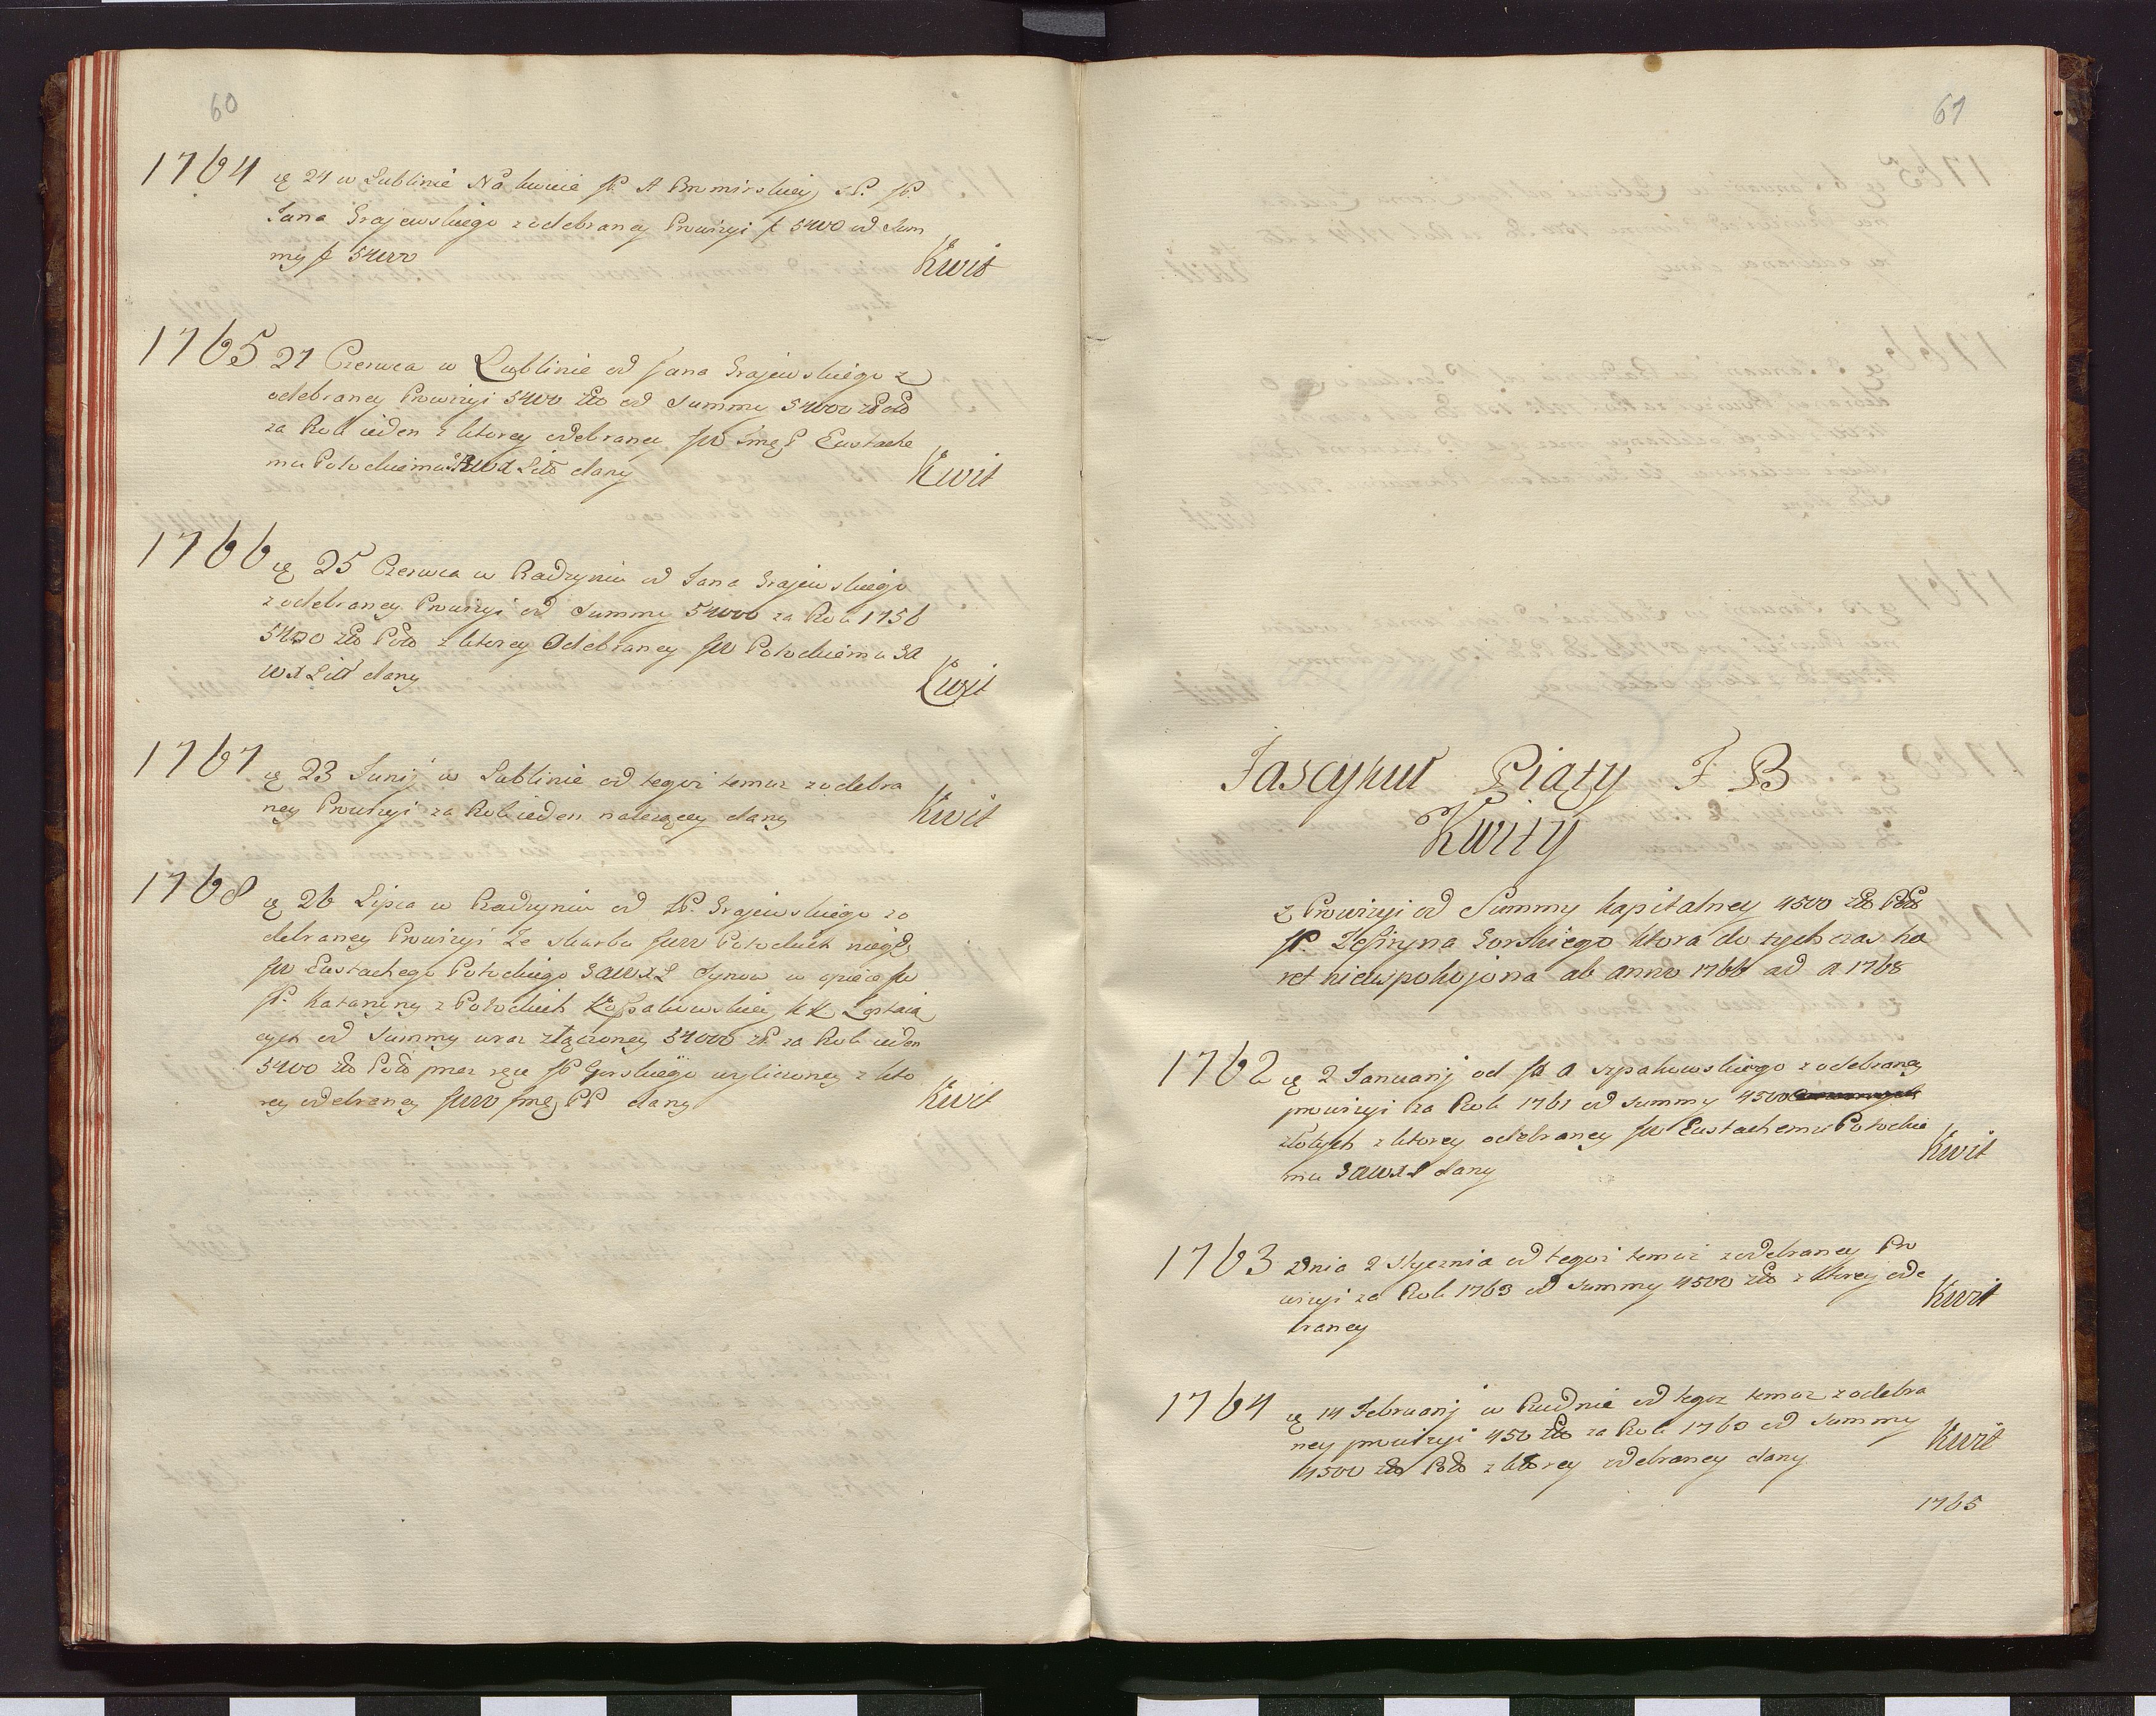 60
1764 ię 24 w Lublinie Na kwicie JP. A
Jana Grajewskiego z odebraney Prowizyi f 5400 od Sum
my f 54000 Kwit
1765 21 Czerwca w Lublinie od Jana Grajewskiego z
odebraney Prowizyi 5400 Zło od Summy 54000 Zł Pol
za Rok ieden z ktorey odebraney JW Eustache
mu Potockiemu dany Kwit
1766 ię 25 Czerwca w Radzyniu od Jana Grajewskiego
z odebraney Prowizyi od Summy 54000 za Rok 1756
5400 Zło Pols z ktorey Odebraney JW Potockiemu GA
WXLitt dany Kwit
1767 ię 23 Junij w Lublinie od tegoż temuz z odebra
ney Prowizyi za Rok ieden należącey dany Kwit
1768 ię 26 Lipca w Radzyniu od JP. Grajewskiego zo
debraney Prowizyi Ze skarbu JWW Potockich niegdy
JW Eustachego Potockiego GAWXL Synow w opiece JW
JP. Katarzyny z Potockich Kossakowskiey KK Zostaią
cych od Summy wraz złączoney 54000 zł za Rok ieden
5400 Zło Pols przez ręce JP Gorskiego wyliczoney z kto
rey odebraney JWW PP dany Kwit
61
Fascykuł Piąty F B
Kwity
z Prowizyi od Summy kapitalney 4500 Zło Pols
JP. Zefiryna Gorskiego ktora do tych czas ha
ret nieuspokojona ab anno 1766 ad a 1768
1762 ię 2 Januarij od JP A Szpakowskiego z odebraney
prowizyi za Rok 1761 od summy 4500
złotych z ktorey odebraney JW Eustachemu Potockie
mu GAWXL dany Kwit
1763 Dnia 2 Stycznia od tegoż temuż z odebraney Pro
wizyi za Rok 1763 od Summy 4500 Zło z ktorey ode
braney Kwit
1764 ię 14 Februarij w Rudnie od tegoz temuz z odebra
ney prowizyi 450 Zło za Rok 1763 od Summy
4500 Zło Pols z ktorey odebraney dany Kwit
1765